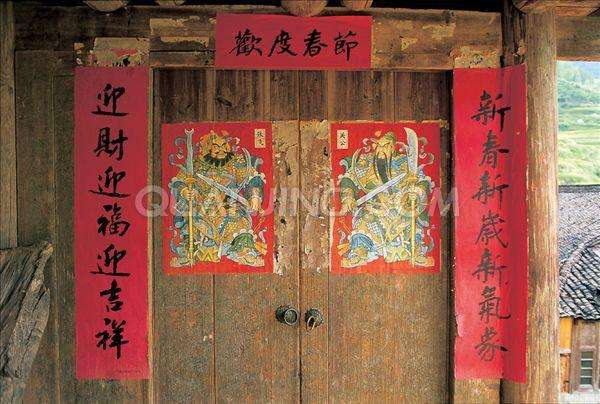 歡度春節
新春新歲新氣象
迎財迎福迎吉祥
关公
張飞
QUANJING.COM